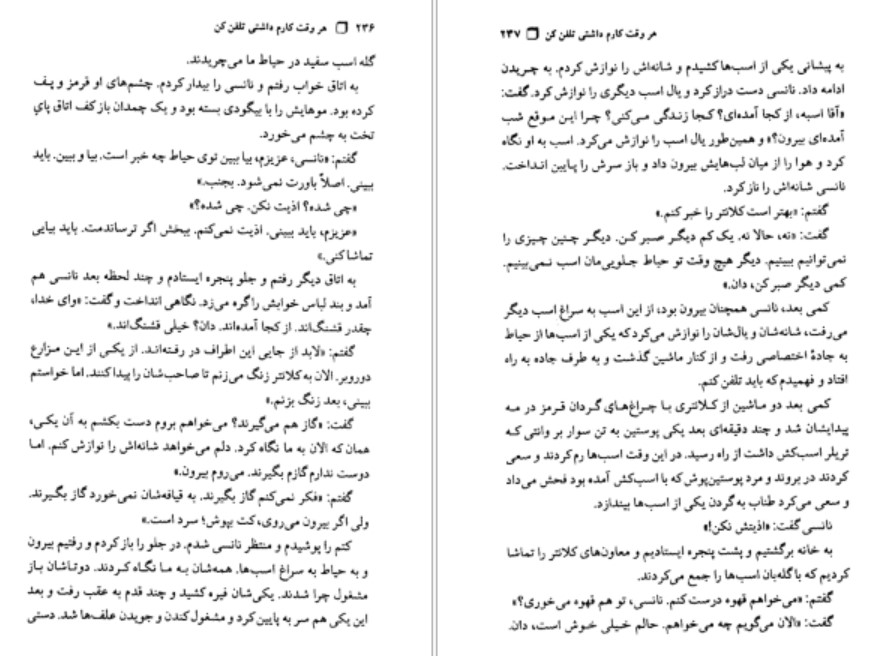 ۲۳۶ ❒ هر وقت کارم داشتی تلفن کن
گله اسب سفید در حیاط ما می‌چریدند.
به اتاق خواب رفتم و نانسی را بیدار کردم. چشم‌های او قرمز و پف
کرده بود. موهایش را با بیگودی بسته بود و یک چمدان باز کف اتاق پای
تخت به چشم می‌خورد.
گفتم: «نانسی، عزیزم، بیا ببین توی حیاط چه خبر است. بیا و ببین. باید
ببینی. اصلاً باورت نمی‌شود. بجنب.»
«چی شده؟ اذیت نکن. چی شده؟»
«عزیزم، باید ببینی. اذیت نمی‌کنم. ببخش اگر ترساندمت. باید بیایی
تماشا کنی.»
به اتاق دیگر رفتم و جلو پنجره ایستادم و چند لحظه بعد نانسی هم
آمد و بند لباس خوابش را گره می‌زد. نگاهی انداخت و گفت: «وای خدا،
چقدر قشنگ‌اند. از کجا آمده‌اند. دان؟ خیلی قشنگ‌اند.»
گفتم: «لابد از جایی این اطراف در رفته‌اند. از یکی از این مزارع
دوروبر. الان به کلانتر زنگ می‌زنم تا صاحب‌شان را پیدا کنند. اما خواستم
ببینی، بعد زنگ بزنم.»
گفت: «گاز هم می‌گیرند؟ می‌خواهم بروم دست بکشم به آن یکی،
همان که الان به ما نگاه کرد. دلم می‌خواهد شانه‌اش را نوازش کنم. اما
دوست ندارم گازم بگیرند. می‌روم بیرون.»
گفتم: «فکر نمی‌کنم گاز بگیرند. به قیافه‌شان نمی‌خورد گاز بگیرند.
ولی اگر بیرون می‌روی، کت بپوش؛ سرد است.»
کتم را پوشیدم و منتظر نانسی شدم. در جلو را باز کردم و رفتیم بیرون
و به حیاط به سراغ اسب‌ها. همه‌شان به ما نگاه کردند. دوتاشان باز
مشغول چرا شدند. یکی‌شان فیره کشید و چند قدم به عقب رفت و بعد
این یکی هم سر به پایین کرد و مشغول کندن و جویدن علف‌ها شد. دستی
هر وقت کارم داشتی تلفن کن ❒ ۲۳۷
به پیشانی یکی از اسب‌ها کشیدم و شانه‌اش را نوازش کردم. به چریدن
ادامه داد. نانسی دست دراز کرد و یال اسب دیگری را نوازش کرد. گفت:
«آقا اسبه، از کجا آمده‌ای؟ کجا زندگی می‌کنی؟ چرا این موقع شب
آمده‌ای بیرون؟» و همین‌طور یال اسب را نوازش می‌کرد. اسب به او نگاه
کرد و هوا را از میان لب‌هایش بیرون داد و باز سرش را پایین انداخت.
نانسی شانه‌اش را ناز کرد.
گفتم: «بهتر است کلانتر را خبر کنم.»
گفت: «نه، حالا نه. یک کم دیگر صبر کن. دیگر چنین چیزی را
نمی‌توانیم ببینیم. دیگر هیچ وقت تو حیاط جلویی‌مان اسب نمی‌بینیم.
کمی دیگر صبر کن، دان.»
کمی بعد، نانسی همچنان بیرون بود، از این اسب به سراغ اسب دیگر
می‌رفت، شانه‌شان و یال‌شان را نوازش می‌کرد که یکی از اسب‌ها از حیاط
به جادهٔ اختصاصی رفت و از کنار ماشین گذشت و به طرف جاده به راه
افتاد و فهمیدم که باید تلفن کنم.
کمی بعد دو ماشین از کلانتری با چراغ‌های گردان قرمز در مه
پیدایشان شد و چند دقیقه‌ای بعد یکی پوستین به تن سوار بر وانتی که
تریلر اسب‌کش داشت از راه رسید. در این وقت اسب‌ها رم کردند و سعی
کردند در بروند و مرد پوستین‌پوش که با اسب‌کش آمده بود فحش می‌داد
و سعی می‌کرد طناب به گردن یکی از اسب‌ها بیندازد.
نانسی گفت: «اذیتش نکن!»
به خانه برگشتیم و پشت پنجره ایستادیم و معاون‌های کلانتر را تماشا
کردیم که با گله‌بان اسب‌ها را جمع می‌کردند.
گفتم: «می‌خواهم قهوه درست کنم. نانسی، تو هم قهوه می‌خوری؟»
گفت: «الان می‌گویم چه می‌خواهم. حالم خیلی خوش است، دان.